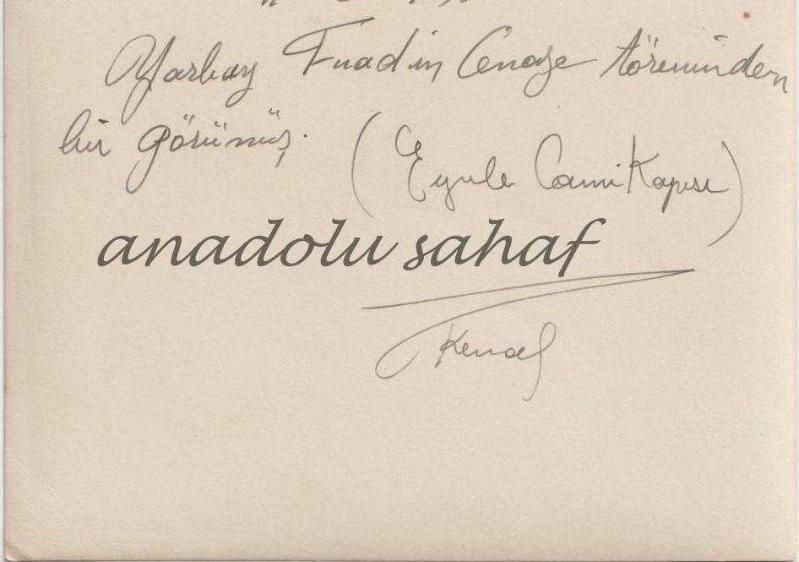 Yarbay Fuadin Cenaze töreninden
bir görünüş. (Eyüb Cami Kapısı)
anadolu sahaf
Kemal